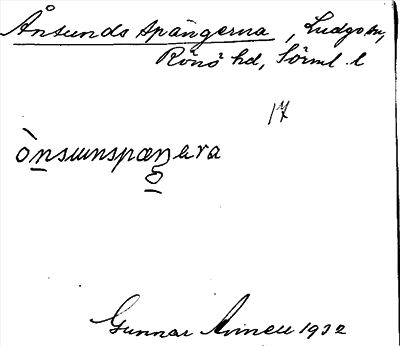 Ånsunds spängerna, Ludgo sn,
Rönö hd, Sörml. l
17
ònsunspæŋera
Gunnar 1932